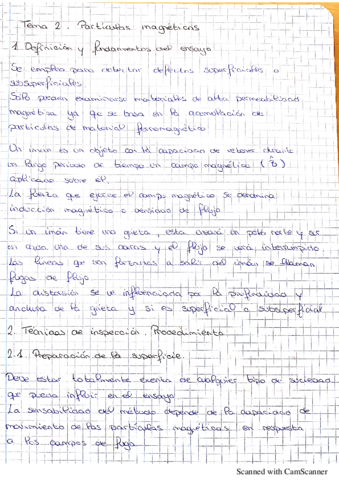 Tema 2. Partículas magnéticas
1. Definición y fundamentos del ensayo
Se emplea para detectar defectos superficiales o
subsuperficiales
Sólo pueden examinarse materiales de alta permeabilidad
magnética ya que se basa en la acumulación de
partículas de material ferromagnético
Un imán es un objeto con la capacidad de retener durante
un largo periodo de tiempo un campo magnético (B)
aplicado sobre él.
La fuerza que ejerce el campo magnético se denomina
inducción magnética o densidad de flujo
Si un imán tiene una grieta, esta creará un polo norte y sur
en cada una de sus caras y el flujo se verá interrumpido
Las líneas que son forzadas a salir del imán se llaman
fugas de flujo
La distorsión se ve influenciada por la profundidad y
anchura de la grieta y si es superficial o subsuperficial
2. Técnicas de inspección. Procedimiento
2.1. Preparación de la superficie.
Debe estar totalmente exenta de cualquier tipo de suciedad
que pueda influir en el ensayo
La sensibilidad del método depende de la capacidad de
movimiento de las partículas magnéticas en respuesta
a los campos de fuga
Scanned with CamScanner